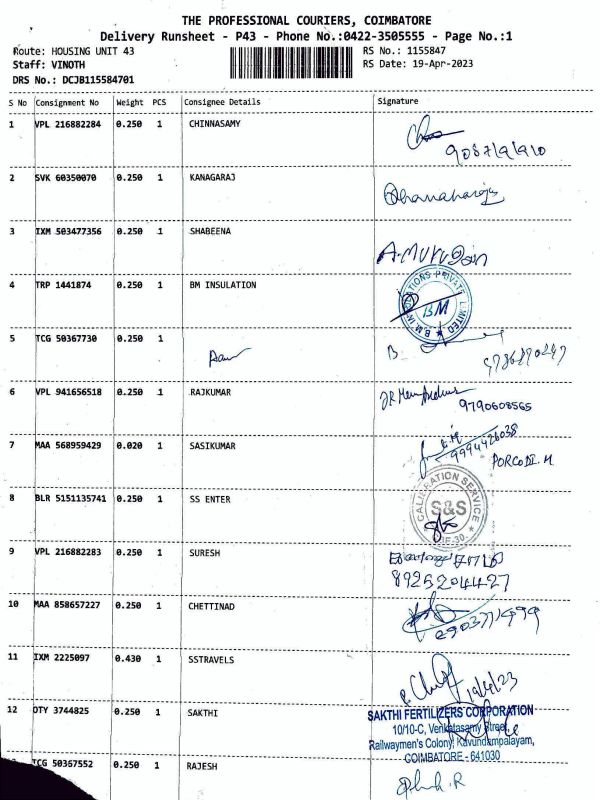 THE PROFESSIONAL COURIERS, COIMBATORE
Delivery Runsheet - P43 - Phone No.:0422-3505555 - Page No.:1
Route: HOUSING UNIT 43 RS No.: 1155847
Staff: VINOTH RS Date: 19-Apr-2023
DRS No.: DCJB115584701
S No Consignment No Weight PCS Consignee Details Signature
1 VPL 216882284 0.250 1 CHINNASAMY
2 SVK 60350070 0.250 1 KANAGARAJ
3 IXM 503477356 0.250 1 SHABEENA
4 TRP 1441874 0.250 1 BM INSULATION
BM
5 TCG 50367730 0.250 1
6 VPL 941656518 0.250 1 RAJKUMAR
9790608565
7 MAA 568959429 0.020 1 SASIKUMAR
9994426038
PORCODI.M
8 BLR 5151135741 0.250 1 SS ENTER
CALIBRATION SERVICE
S&S
9 VPL 216882283 0.250 1 SURESH
8926204427
10 MAA 858657227 0.250 1 CHETTINAD
11 IXM 2225097 0.430 1 SSTRAVELS
19/4/23
12 OTY 3744825 0.250 1 SAKTHI
SAKTHI FERTILIZERS CORPORATION
10/10-C, Venkatasamy Street,
Railwaymen's Colony, Kavundampalayam,
COIMBATORE - 641030
TCG 50367552 0.250 1 RAJESH